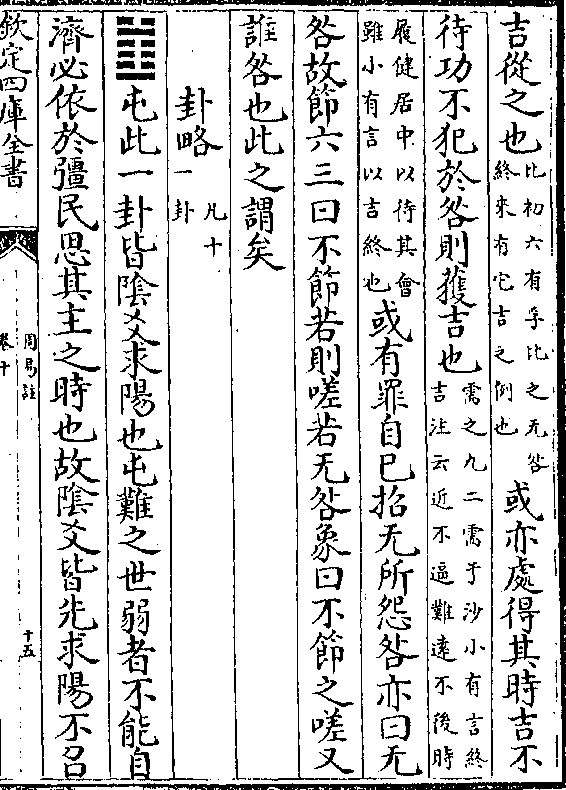 吉從之也比初六有孚比之无咎終來有它吉之例也或亦處得其時吉不
待功不犯於咎則獲吉也需之九二需于沙小有言終吉注云近不逼難遠不後時
履健居中以待其會雖小有言以吉終也或有罪自已招无所怨咎亦曰无
咎故節六三曰不節若則嗟若无咎象曰不節之嗟又
誰咎也此之謂矣
卦略凡十一卦
䷂屯此一卦皆陰爻求陽也屯難之世弱者不能自
濟必依於彊民思其主之時也故陰爻皆先求陽不召
欽定四庫全書
周易註
卷十
十五